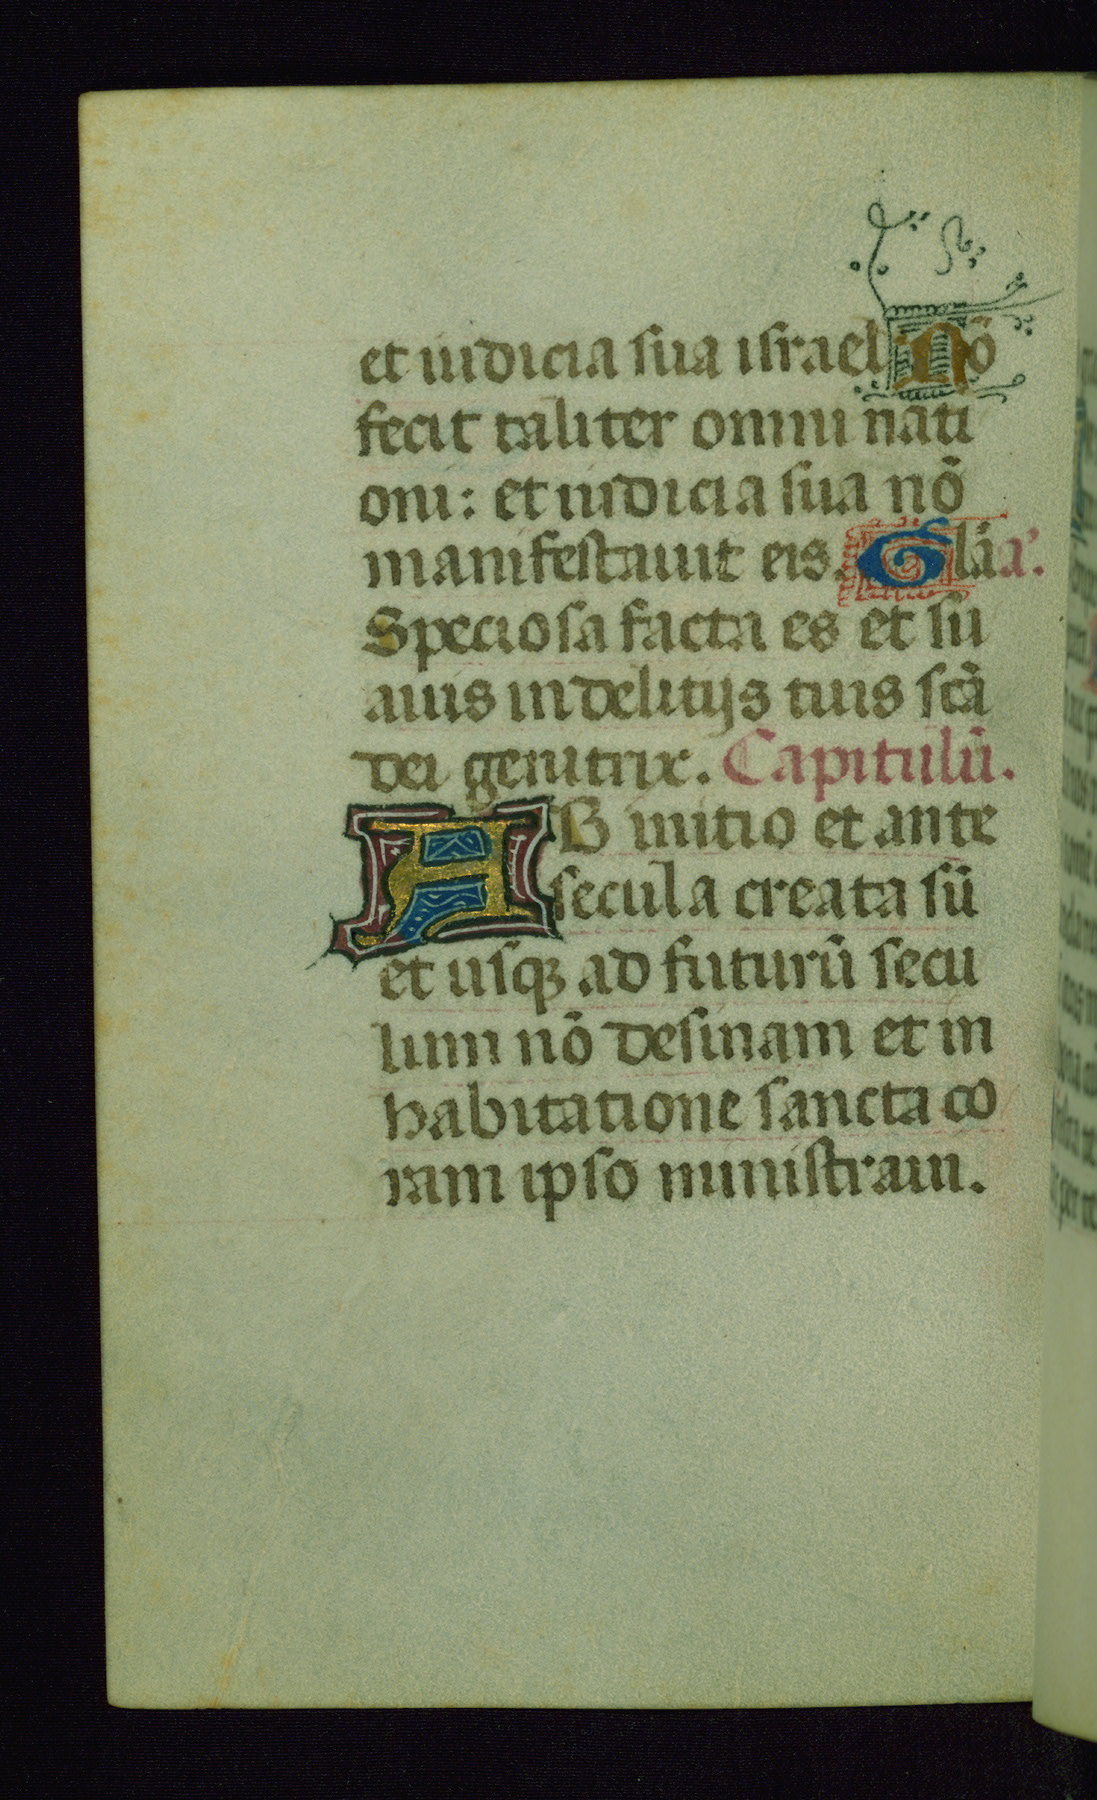 et iudicia sua israel Nō
fecit taliter omni nati
oni: et iudicia sua nō
manifestauit eis. Glīa a'.
Speciosa facta es et su
auis in delitijs tuis scā
dei genitrix. Capitulū.
AB initio et ante
secula creata sū
et usqꝫ ad futurū secu
lum nō desinam et in
habitatione sancta co
ram ipso ministraui.